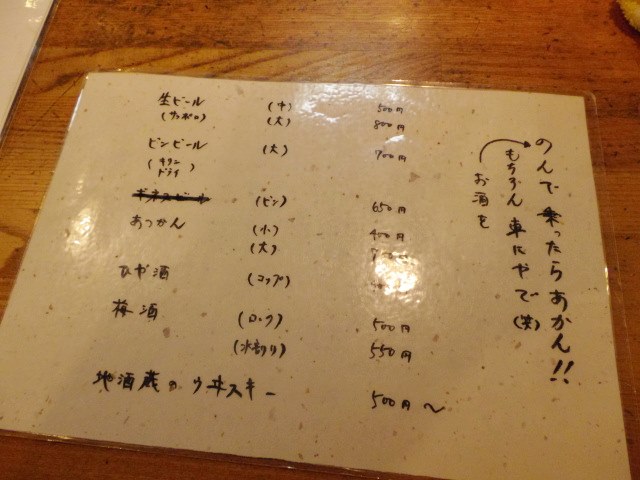 のんで乗ったらあかん!!
もちろん車にやで(笑)
お酒を
生ビール (中) 500円
(サッポロ) (大) 800円
ビンビール (大) 700円
(キリン
ドライ)
ギネスビール (ビン) 650円
あつかん (小) 400円
(大)
ひや酒 (コップ)
梅酒 (ロック) 500円
(水割り) 550円
地酒蔵のウヰスキー 500円〜